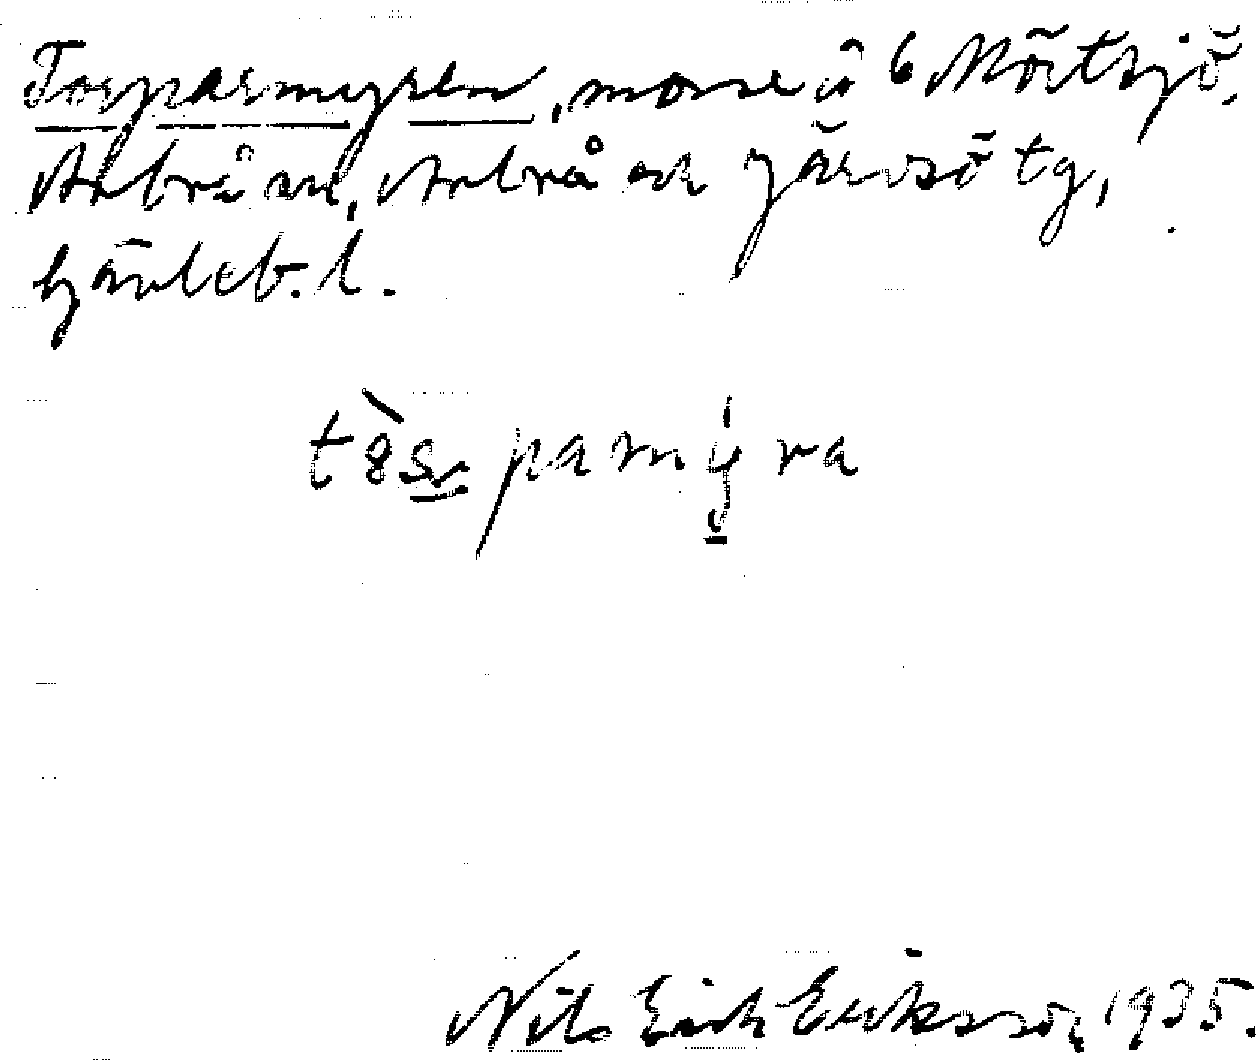 Torparmyren, mosse å 6 Mörtsjö,
Arbrå sn, Arbrå och Järvsö tg,
Gävleb. l.
pamýra
Nils Erik Eriksson 1935.